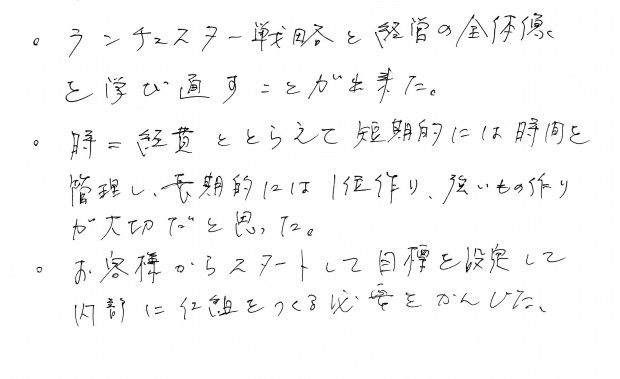 。ランチェスター戦略と経営の全体像
を学び直すことが出来た。
。時=経費ととらえて短期的には時間を
管理し、長期的には1位作り、強いもの作り
が大切だと思った。
。お客様からスタートして目標を設定して
内部に仕組をつくる必要をかんじた、